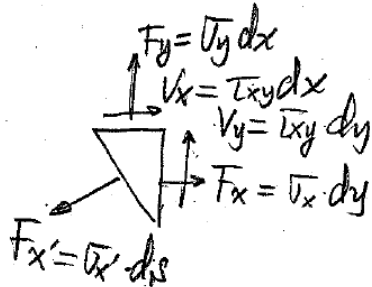 Fy = σy dx
Vx = τxy dx
Vy = τxy dy
Fx = σx · dy
Fx' = σx' · ds